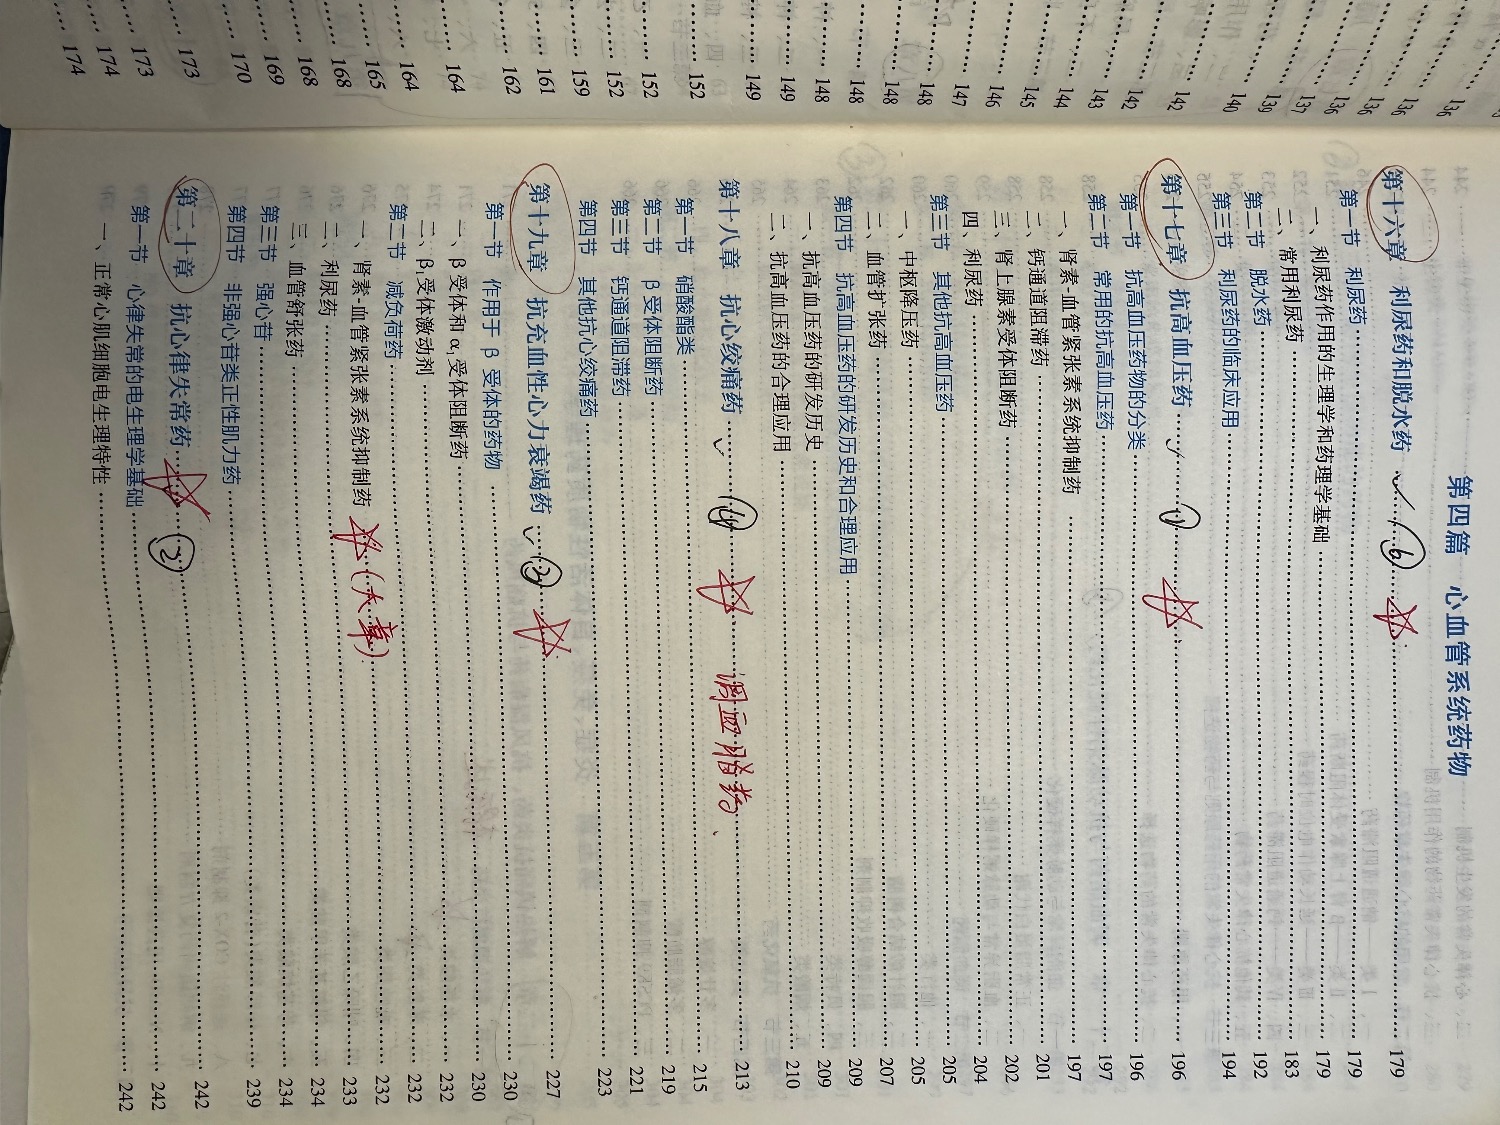 第四篇 心血管系统药物
第十六章 利尿药和脱水药 ✓ ⑥ ☆ 179
第一节 利尿药 179
一、利尿药作用的生理学和药理学基础 179
二、常用利尿药 183
第二节 脱水药 192
第三节 利尿药的临床应用 194
第十七章 抗高血压药 ✓ ① ☆ 196
第一节 抗高血压药物的分类 196
第二节 常用的抗高血压药 197
一、肾素-血管紧张素系统抑制药 197
二、钙通道阻滞药 201
三、肾上腺素受体阻断药 202
四、利尿药 204
第三节 其他抗高血压药 205
一、中枢降压药 205
二、血管扩张药 207
第四节 抗高血压药的研发历史和合理应用 209
一、抗高血压药的研发历史 209
二、抗高血压药的合理应用 210
第十八章 抗心绞痛药 ✓ ④ ☆ 调血脂药、 213
第一节 硝酸酯类 215
第二节 β受体阻断药 219
第三节 钙通道阻滞药 221
第四节 其他抗心绞痛药 223
第十九章 抗充血性心力衰竭药 ✓ ③ ☆ 227
第一节 作用于 β 受体的药物 230
一、β受体和α₁受体阻断药 230
二、β₁受体激动剂 232
第二节 减负荷药 232
一、肾素-血管紧张素系统抑制药 ☆(大章) 232
二、利尿药 233
三、血管舒张药 234
第三节 强心苷 234
第四节 非强心苷类正性肌力药 239
第二十章 抗心律失常药 ☆ ② 242
第一节 心律失常的电生理学基础 242
一、正常心肌细胞电生理特性 242
136
136
136
136
137
139
140
142
142
143
144
145
146
147
148
148
148
149
149
152
152
152
159
161
162
164
164
165
168
168
169
170
173
173
174
174